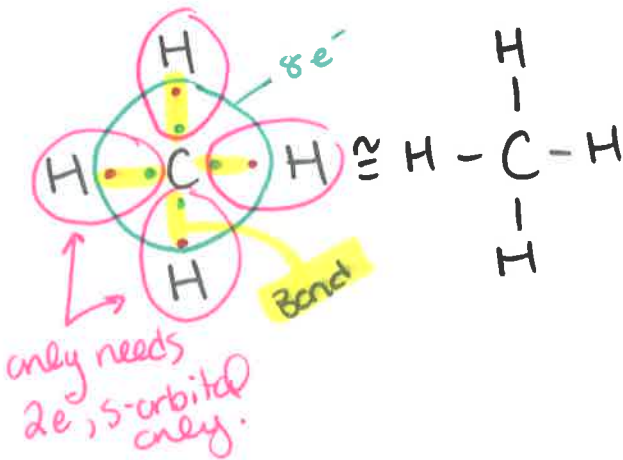 H
8e⁻
H C H ≅ H - C - H
H
H
H
Bond
only needs
2e⁻, s-orbital
only.